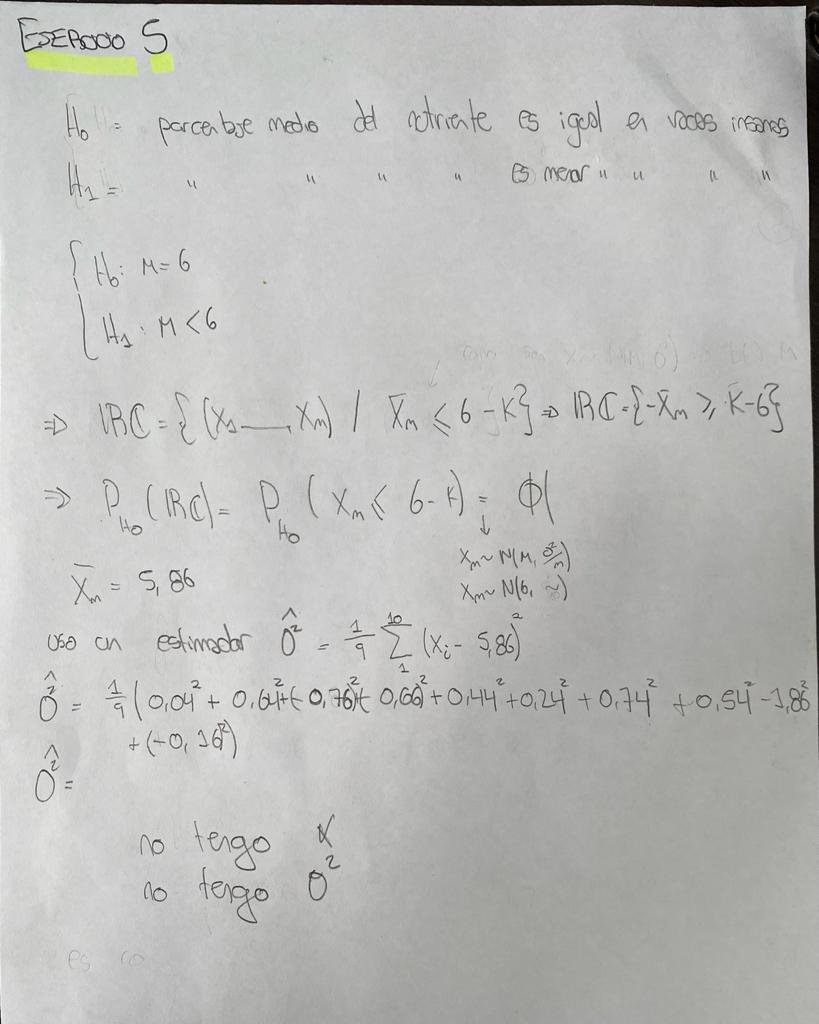 EJERCICIO 5
H₀ = porcentaje medio del nutriente es igual en vacas insanas
H₁ = " " " " es menor " " " "
{ H₀: M = 6
H₁: M < 6
⇒ RC = {(X₁ __, Xₘ) / X̄ₘ ≤ 6 - K} ⇒ RC = {-X̄ₘ ≥ K-6}
⇒ P_H₀ (RC) = P_H₀ (Xₘ ≤ 6 - K) = Φ(
↓
Xₘ ~ N(M, σ²/m)
Xₘ ~ N(6, ~)
X̄ₘ = 5,86
uso un estimador σ̂² = 1/9 Σ₁¹⁰ (Xᵢ - 5,86)²
σ̂² = 1/9 (0,04² + 0,64² + (-0,76)² + 0,66² + 0,44² + 0,24² + 0,74² + 0,54² - 1,86²
+ (-0,16²)
σ̂² =
no tengo α
no tengo σ²
es no